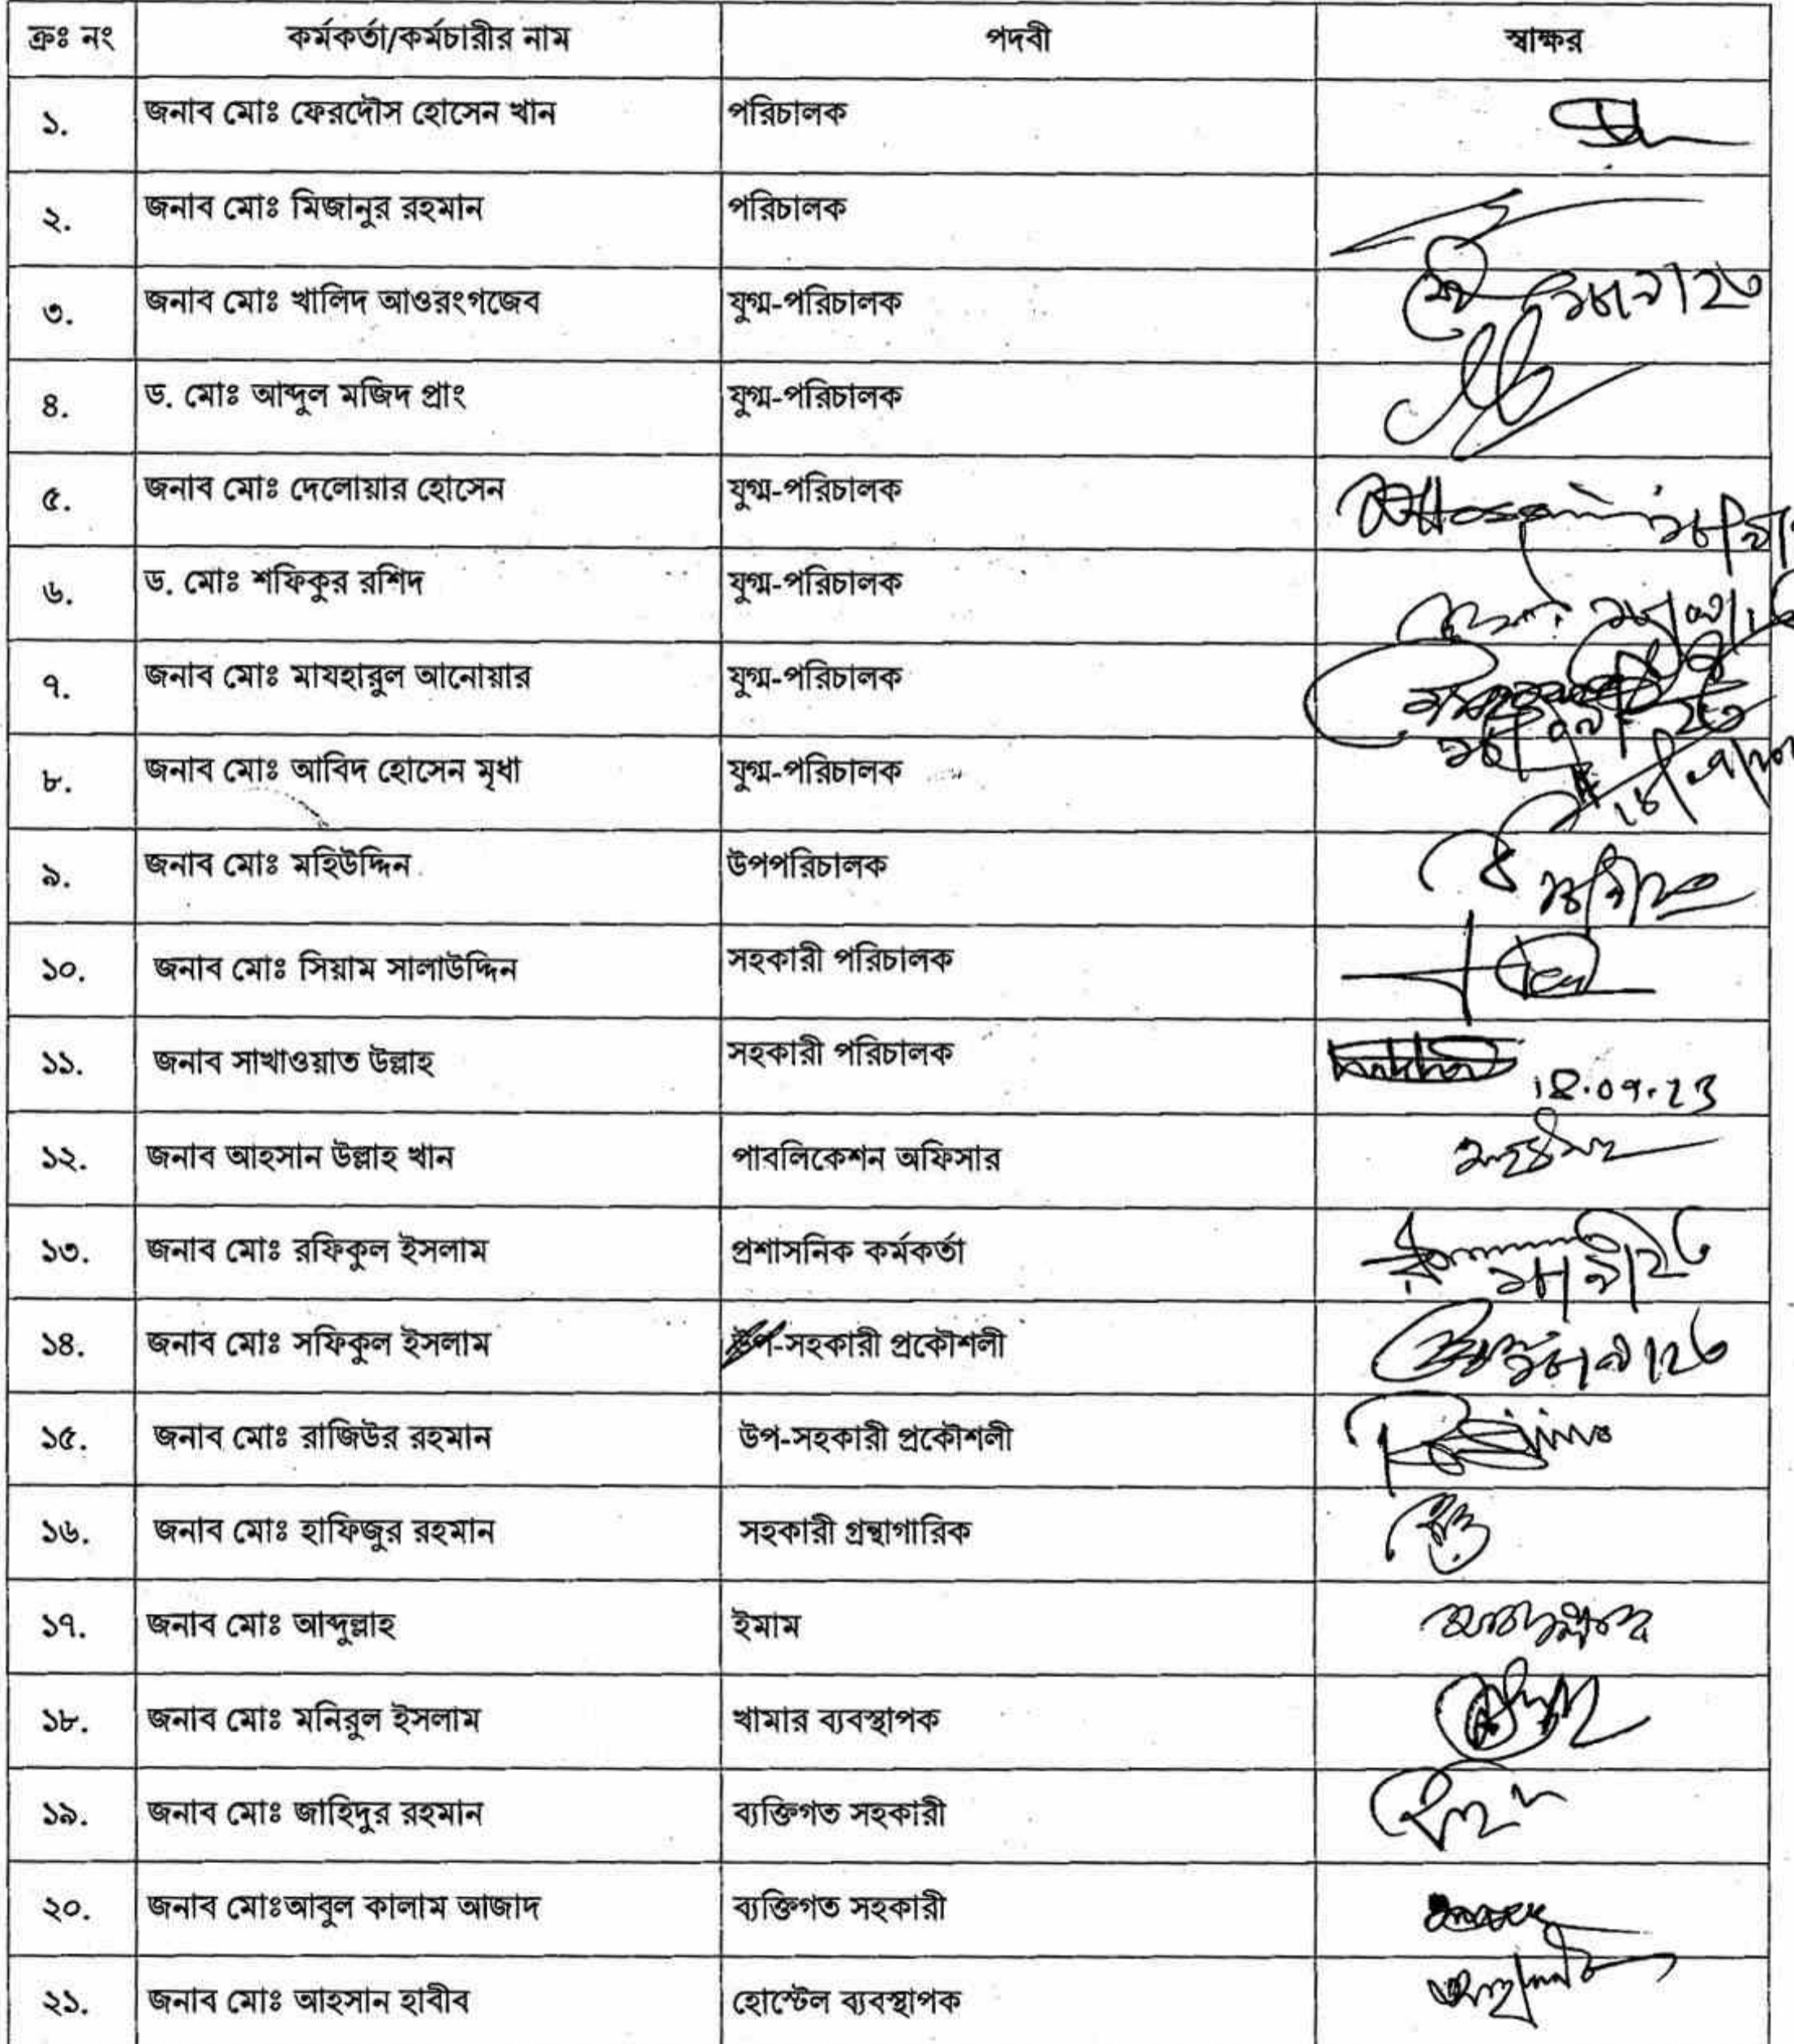 ক্রঃ নং কর্মকর্তা/কর্মচারীর নাম পদবী স্বাক্ষর
১. জনাব মোঃ ফেরদৌস হোসেন খান পরিচালক
২. জনাব মোঃ মিজানুর রহমান পরিচালক
৩. জনাব মোঃ খালিদ আওরংগজেব যুগ্ম-পরিচালক
৪. ড. মোঃ আব্দুল মজিদ প্রাং যুগ্ম-পরিচালক
৫. জনাব মোঃ দেলোয়ার হোসেন যুগ্ম-পরিচালক
৬. ড. মোঃ শফিকুর রশিদ যুগ্ম-পরিচালক
৭. জনাব মোঃ মাযহারুল আনোয়ার যুগ্ম-পরিচালক
৮. জনাব মোঃ আবিদ হোসেন মৃধা যুগ্ম-পরিচালক
৯. জনাব মোঃ মহিউদ্দিন উপপরিচালক
১০. জনাব মোঃ সিয়াম সালাউদ্দিন সহকারী পরিচালক
১১. জনাব সাখাওয়াত উল্লাহ সহকারী পরিচালক 18.09.23
১২. জনাব আহসান উল্লাহ খান পাবলিকেশন অফিসার
১৩. জনাব মোঃ রফিকুল ইসলাম প্রশাসনিক কর্মকর্তা
১৪. জনাব মোঃ সফিকুল ইসলাম উপ-সহকারী প্রকৌশলী
১৫. জনাব মোঃ রাজিউর রহমান উপ-সহকারী প্রকৌশলী
১৬. জনাব মোঃ হাফিজুর রহমান সহকারী গ্রন্থাগারিক
১৭. জনাব মোঃ আব্দুল্লাহ ইমাম
১৮. জনাব মোঃ মনিরুল ইসলাম খামার ব্যবস্থাপক
১৯. জনাব মোঃ জাহিদুর রহমান ব্যক্তিগত সহকারী
২০. জনাব মোঃআবুল কালাম আজাদ ব্যক্তিগত সহকারী
২১. জনাব মোঃ আহসান হাবীব হোস্টেল ব্যবস্থাপক